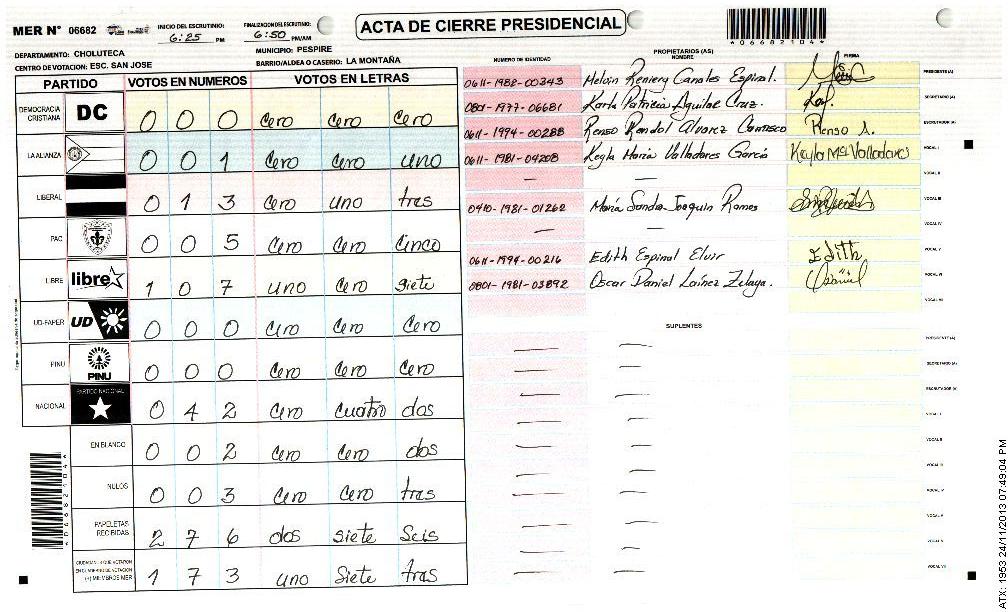 MER Nº 06682
INICIO DEL ESCRUTINIO: 6:25 PM
FINALIZACION DEL ESCRUTINIO: 6:50 PM/AM
ACTA DE CIERRE PRESIDENCIAL
*06682104*
DEPARTAMENTO: CHOLUTECA
MUNICIPIO: PESPIRE
CENTRO DE VOTACION: ESC. SAN JOSE
BARRIO/ALDEA O CASERIO: LA MONTAÑA
PARTIDO VOTOS EN NUMEROS VOTOS EN LETRAS
DEMOCRACIA CRISTIANA DC 0 0 0 Cero Cero Cero
LA ALIANZA 0 0 1 Cero Cero uno
LIBERAL 0 1 3 Cero uno tres
PAC 0 0 5 Cero Cero Cinco
LIBRE libre 1 0 7 uno Cero siete
UD-FAPER UD 0 0 0 Cero Cero Cero
PINU PINU 0 0 0 Cero Cero Cero
NACIONAL PARTIDO NACIONAL 0 4 2 Cero cuatro dos
EN BLANCO 0 0 2 Cero Cero dos
NULOS 0 0 3 Cero Cero tres
PAPELETAS RECIBIDAS 2 7 6 dos siete Seis
CIUDADANOS QUE VOTARON 1 7 3 uno Siete tres
(+) MIEMBROS MER
*06682104*
PROPIETARIOS (AS)
NUMERO DE IDENTIDAD NOMBRE FIRMA
0611-1982-00343 Melvin Reniery Canales Espinal. PRESIDENTE (A)
0801-1977-06681 Karla Patricia Aguilar Cruz. Kaf. SECRETARIO (A)
0611-1994-00288 Renso Randol Alvarez Renso A. ESCRUTADOR (A)
0611-1981-04208 Keyla Maria Valladares García Keyla Mª Valladares VOCAL I
— — VOCAL II
0410-1981-01262 María Sandra Joaquin Ramos VOCAL III
— — VOCAL IV
0611-1994-00216 Edith Espinal Elvir Edith VOCAL V
0801-1981-03892 Oscar Daniel Laínez Zelaya. VOCAL VI
VOCAL VII
SUPLENTES
— — PRESIDENTE (A)
— — SECRETARIO (A)
— — ESCRUTADOR (A)
— — VOCAL I
— — VOCAL II
— — VOCAL III
— — VOCAL IV
— — VOCAL V
— — VOCAL VI
— — VOCAL VII
ATX: 1953 24/11/2013 07:49:04 PM